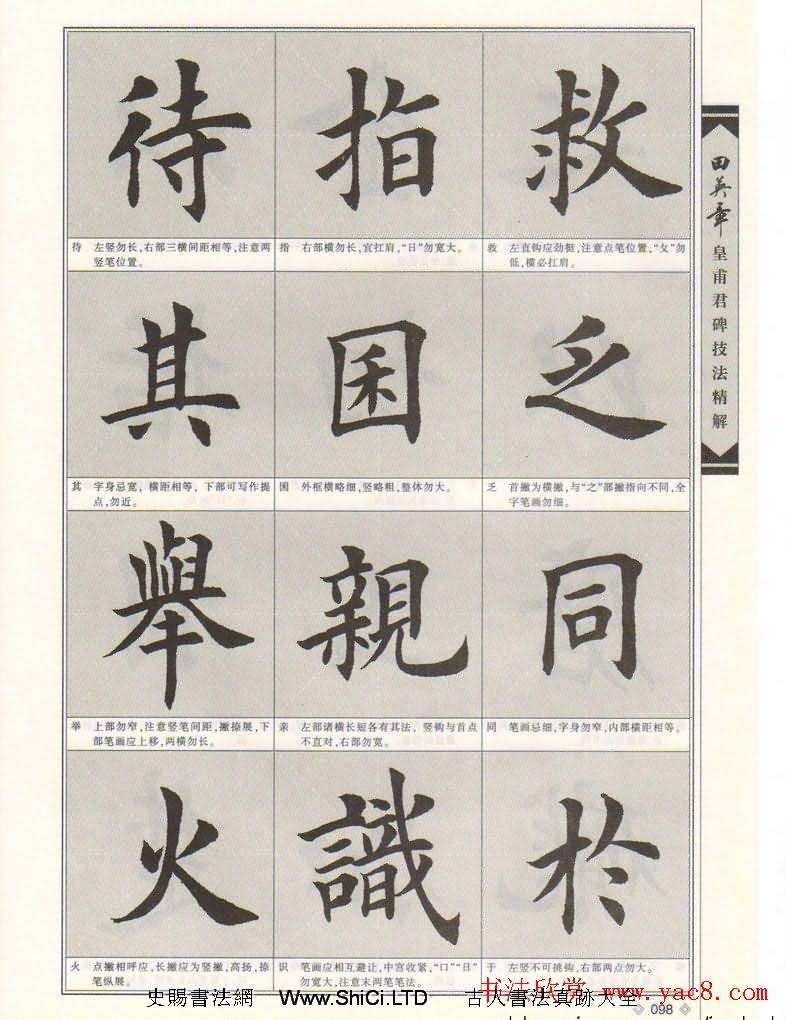 待
指
救
待 左竖勿长，右部三横间距相等，注意两
竖笔位置。
指 右部横勿长，宜扛肩，“日”勿宽大。
救 左直钩应劲挺，注意点笔位置，“攵”勿
低，横必扛肩。
其
困
乏
其 字身忌宽，横距相等，下部可写作提
点，勿近。
困 外框横略细，竖略粗，整体勿大。
乏 首撇为横撇，与“之”部撇指向不同，全
字笔画勿细。
舉
親
同
举 上部勿窄，注意竖笔间距，撇捺展，下
部笔画应上移，两横勿长。
亲 左部诸横长短各有其法，竖钩与首点
不直对，右部勿宽。
同 笔画忌细，字身勿窄，内部横距相等。
火
識
於
火 点撇相呼应，长撇应为竖撇，高扬，捺
笔纵展。
识 笔画应相互避让，中宫收紧，“口”“日”
勿宽大，注意末两笔笔法。
于 左竖不可挑钩，右部两点勿大。
田英章
皇甫君碑技法精解
史賜書法網 Www.ShiCi.LTD 古人書法真跡大全
书法欣赏 www.yac8.com
098